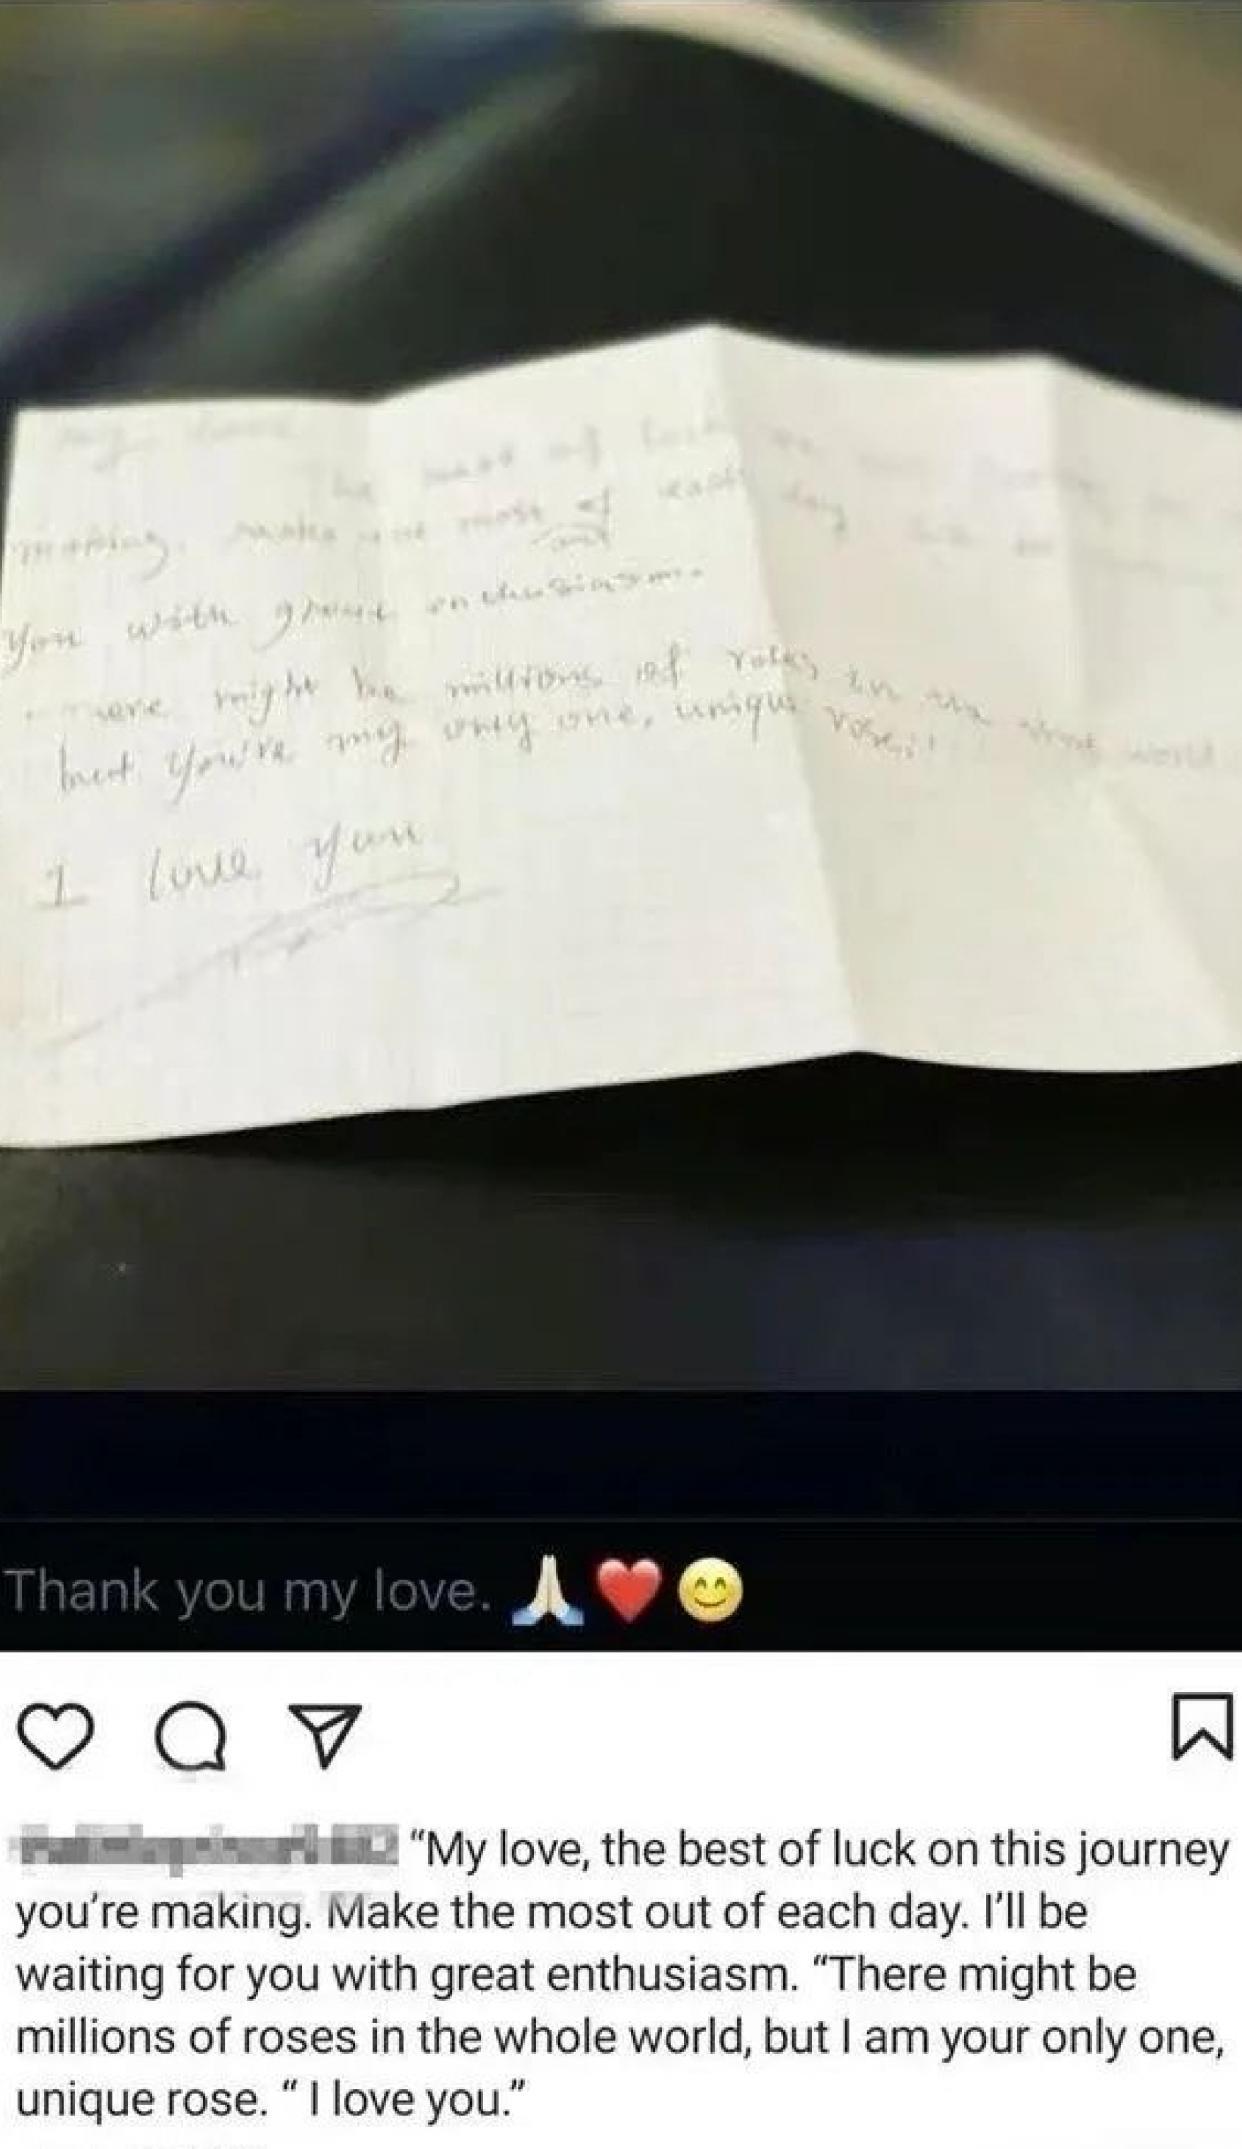 the most of luck
making. make the most of each day
out
you with great enthusiasm.
there might be millions of roses in the whole world
but you're my only one, unique rose"
I love you
Thank you my love. 🙏🏻❤️😊
“My love, the best of luck on this journey
you’re making. Make the most out of each day. I’ll be
waiting for you with great enthusiasm. “There might be
millions of roses in the whole world, but I am your only one,
unique rose. “ I love you.”